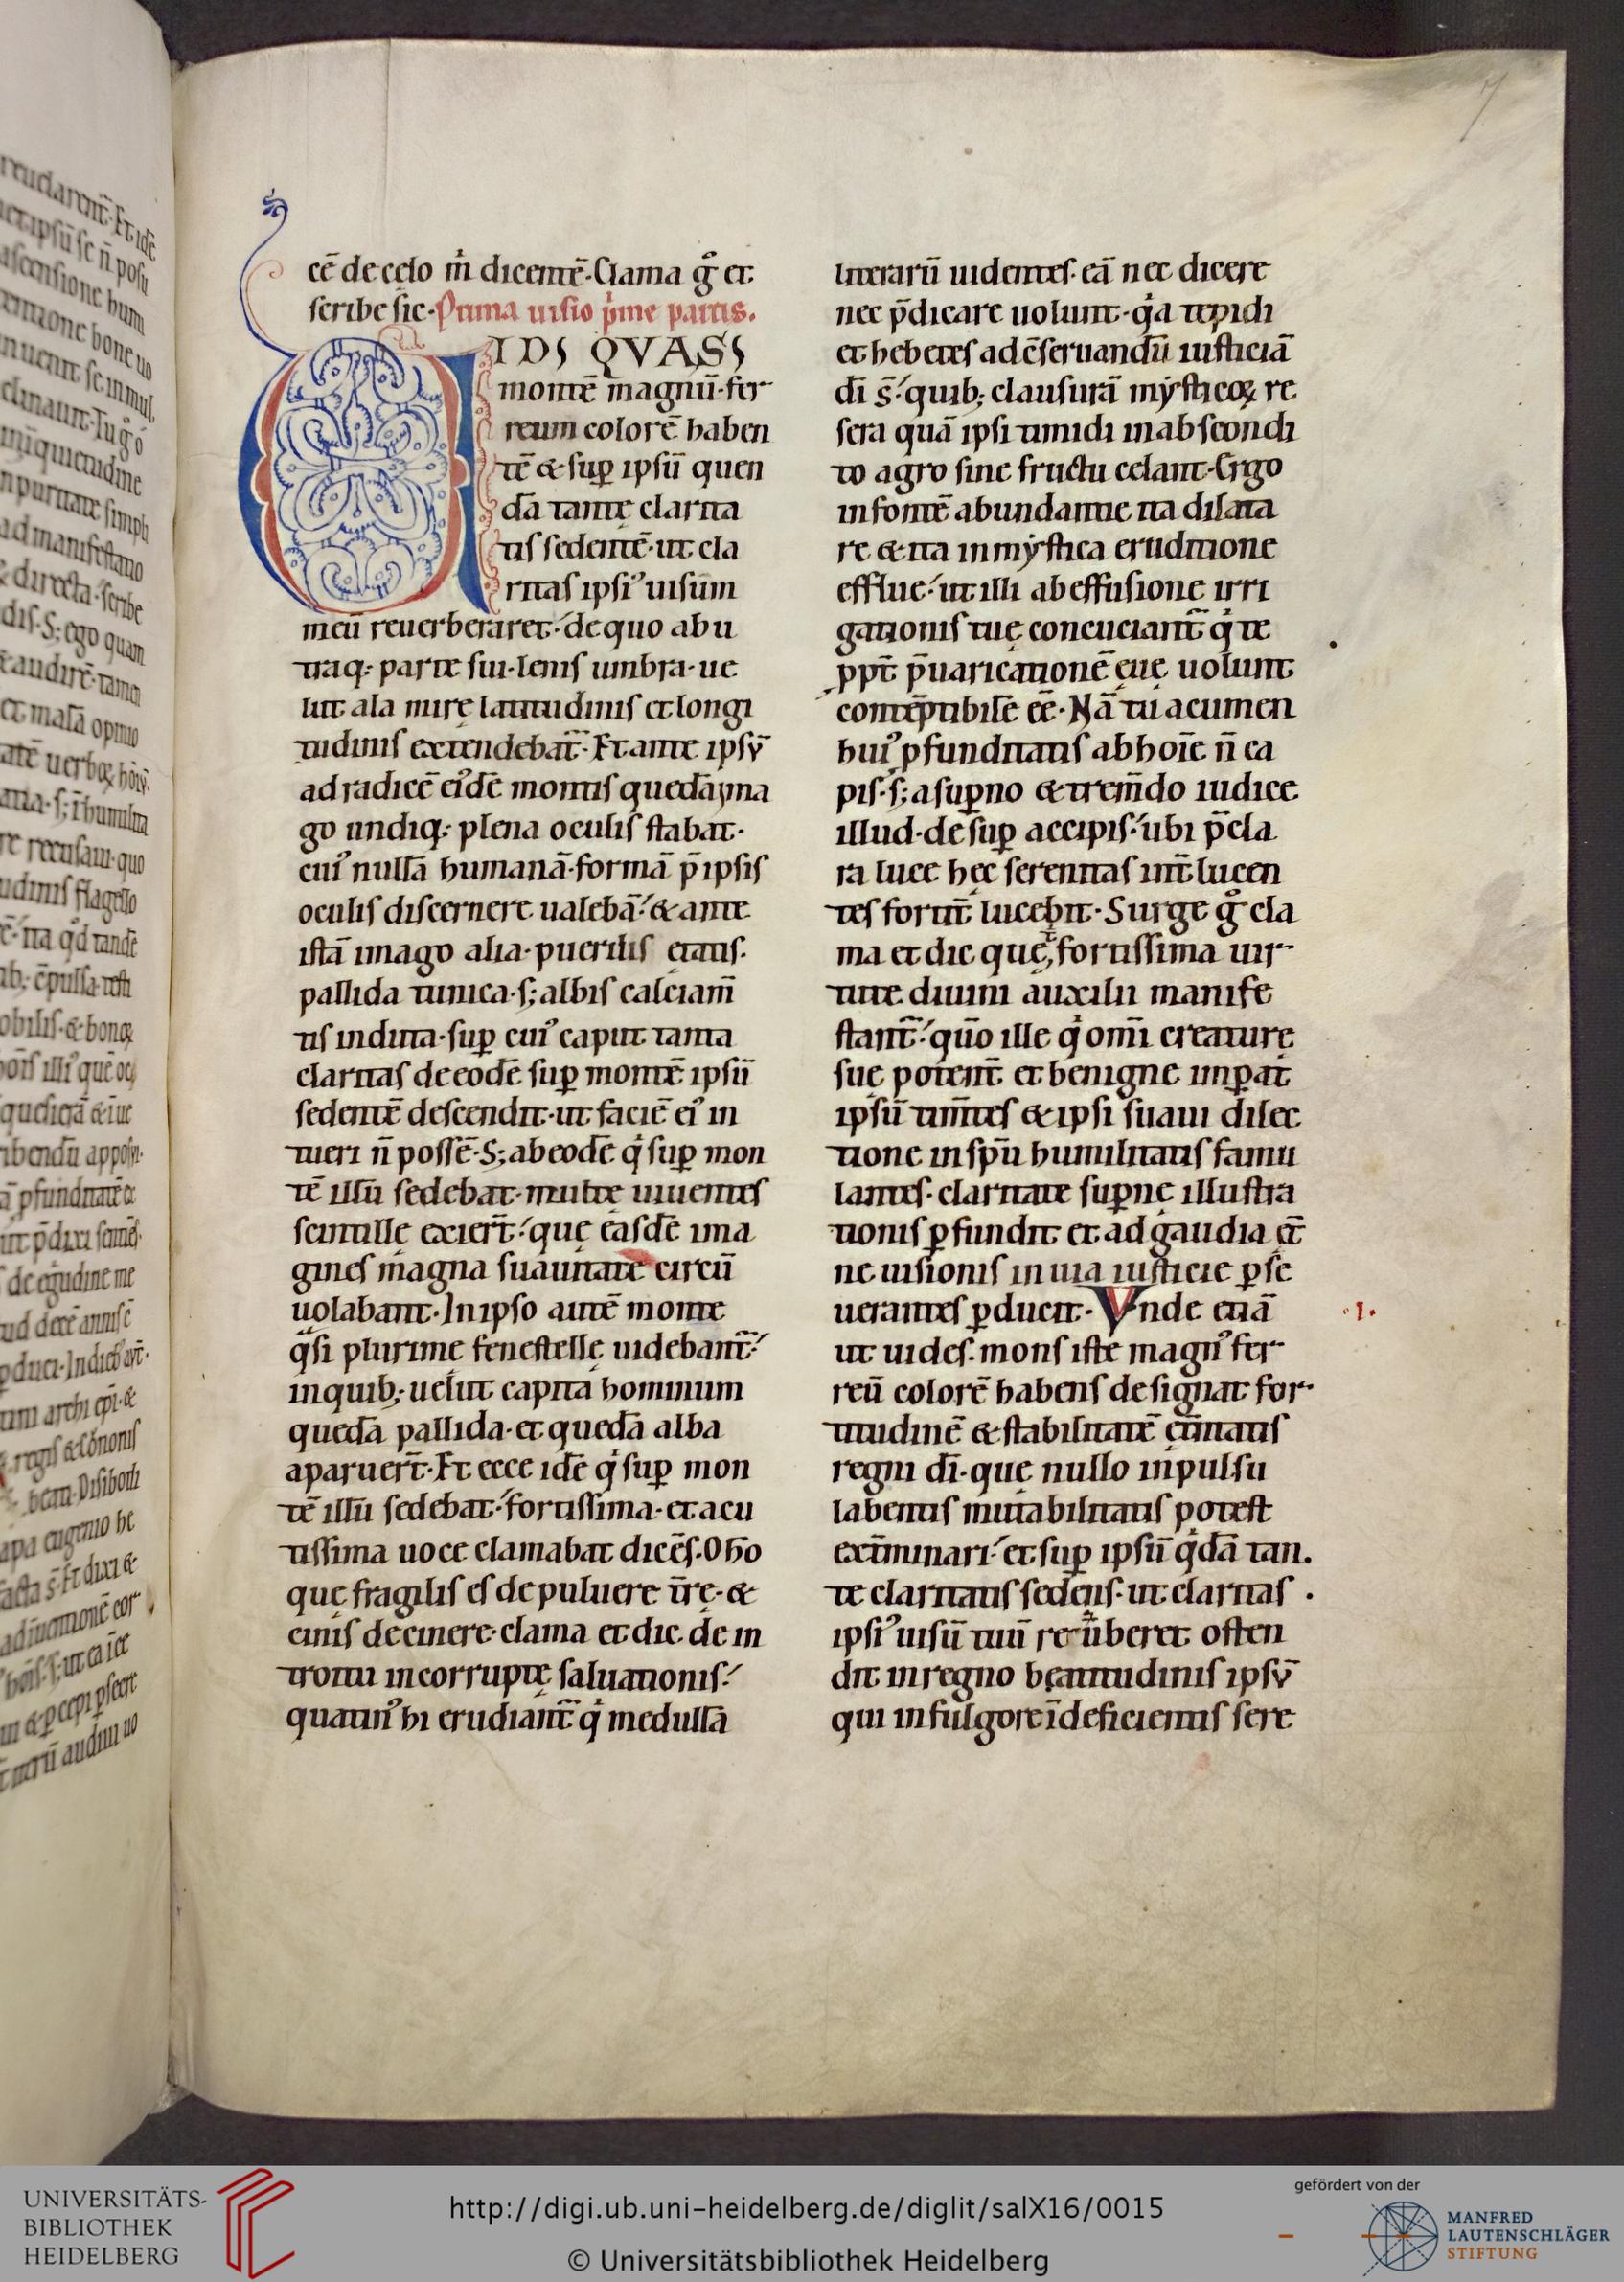 cē de celo m̄ dicentē. Clama g̊ et
scribe sic. Prima uisio p̄me partis.
VIDI QVASI
montē magnū. fer
reum colorē haben
tē & sup̱ ipsū quen
dā tantę clarita
tis sedentē. ut cla
ritas ipsi᾽ uisum
meū reuerberaret. de quo ab u
traq; parte sui. lenis umbra. ue
lut ala mirę latitudinis et longi
tudinis extendebat᷑. Et ante ipsū
ad radicē ei᾽dē montis quedā yma
go undiq; plena oculis stabat.
cui᾽ nullā humanā. formā p̄ ipsis
oculis discernere ualebā. & ante
istā imago alia. puerilis etatis.
pallida tunica. s; albis calciam̄
tis induta. sup̱ cui᾽ caput tanta
claritas de eodē sup̱ montē ipsū
sedentē descendit. ut faciē ei᾽ in
tueri n̄ possē. S; ab eodē q̇ sup̱ mon
tē illū sedebat. multę uiuentes
scintillę exiert̄. quę easdē ima
gines magna suauitate circū
uolabant. In ipso autē monte
qᵃsi plurimę fenestellę uidebant᷑.
in quib; uelut capita hominum
quedā pallida. et quedā alba
aparuert̄. Et ecce idē q̇ sup̱ mon
tē illū sedebat. fortissima. et acu
tissima uoce clamabat dicēs. O hō
que fragilis es de puluere t̄rę. &
cinis de cinere. clama et dic de in
troitu incorruptę saluationis.
quatin᾽ hi erudiant᷑ q̇ medullā
litterarū uidentes. eā nec dicere
nec p̄dicare uolunt. qͥa tepidi
et hebetes ad c̄seruandū iusticiā
dī s̄. quib; clausurā mẏsticoꝝ re
sera quā ipsi timidi in abscondi
to agro sine fructu celant. Ergo
in fontē abundantie ita dilata
re & ita in mẏstica eruditione
efflue. ut illi ab effusione irri
gationis tuę concuciant᷑ q̇ te
ppt̄ p̄uaricationē euę uolunt
contēptibilē eē. Nā tu acumen
hui᾽ pfunditatis ab hoīe n̄ ca
pis. s; a sup̱no & trem̄do iudice
illud. desup̱ accipis. ubi p̄cla
ra luce hęc serenitas int̄ lucen
tes fortit̄ lucebit. Surge g̊ cla
ma et dic quę t᷑ fortissima uir
tute diuini auxilii manife
stant᷑. quō ille q̇ om̄i creaturę
suę potent̄ et benigne inp̱at
ipsū tim̄tes & ipsi suaui dilec
tione in spū humilitatis famu
lantes. claritate sup̱nę illustra
tionis p̱fundit et ad gaudia et̄
nę uisionis in uia iusticie p̱se
uerantes p̱ducit. Vnde etiā
·I·
ut uides. mons iste magn᾽ fer
reū colorē habens designat for
titudinē & stabilitatē et̄nitatis
regni dī. quę nullo inpulsu
labentis mutabilitatis potest
ext̄minari. et sup̱ ipsū q̇dā tan
te claritatis sedens. ut claritas
ipsi᾽ uisū tuū reūberet osten
dit in regno beatitudinis ipsū
qui in fulgore īdeficientis sere
UNIVERSITÄTS-
BIBLIOTHEK
HEIDELBERG
http://digi.ub.uni-heidelberg.de/diglit/salX16/0015
© Universitätsbibliothek Heidelberg
gefördert von der
MANFRED
LAUTENSCHLÄGER
STIFTUNG